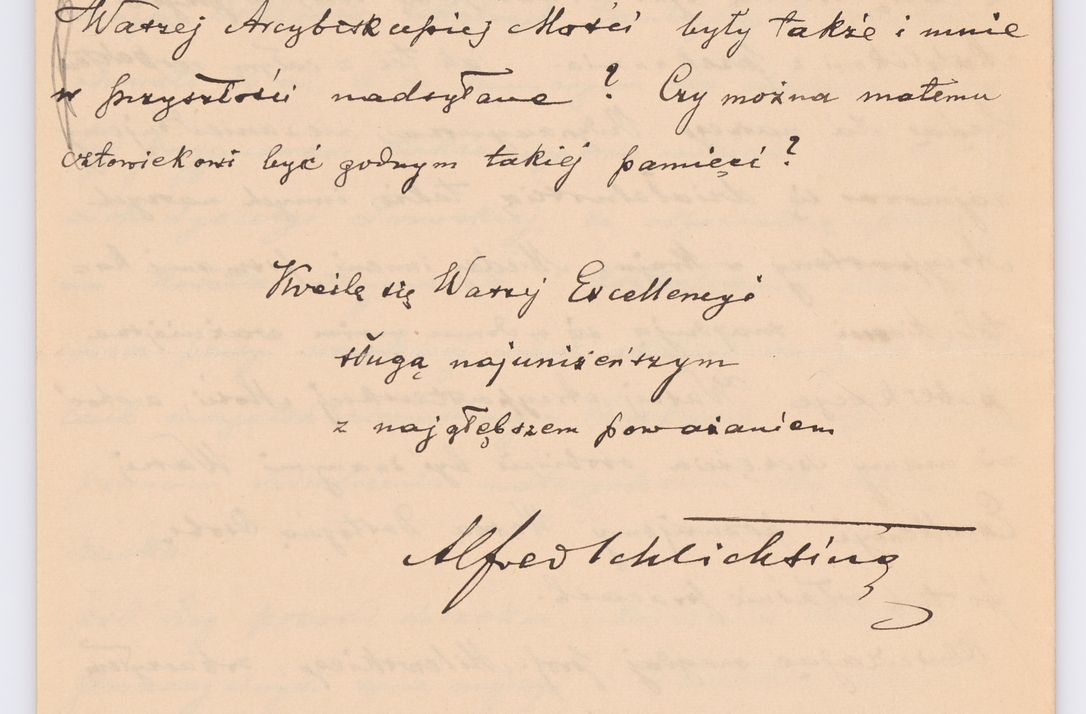 Waszej Arcybiskupiej Mości były także i mnie
w przyszłości nadsyłane? Czy można małemu
człowiekowi być godnym takiej pamięci?
Kreślę się Waszej Excellencyi
sługą najuniżeńszym
z najgłębszem poważaniem
Alfred Schlichting